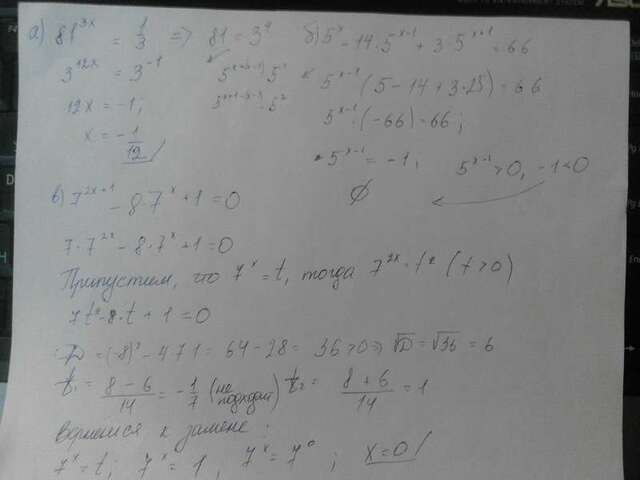 а) 81^{3x} = 1/3 => 81 = 3^4
3^{12x} = 3^{-1}
12x = -1;
x = -1/12
б) 5^x - 14·5^{x-1} + 3·5^{x+1} = 66
5^{x-1} (5 - 14 + 3·25) = 66
5^{x-1}·(-66) = 66;
5^{x-1} = -1; 5^{x-1} > 0, -1 < 0
∅
в) 7^{2x+1} - 8·7^x + 1 = 0
7·7^{2x} - 8·7^x + 1 = 0
Припустим, что 7^x = t, тогда 7^{2x} = t^2 (t > 0)
7t^2 - 8·t + 1 = 0
D = (-8)^2 - 4·7·1 = 64 - 28 = 36 > 0 => √D = √36 = 6
t_1 = (8 - 6)/14 = -1/7 (не подходит) t_2 = (8 + 6)/14 = 1
Вернемся к замене:
7^x = t; 7^x = 1, 7^x = 7^0; x = 0